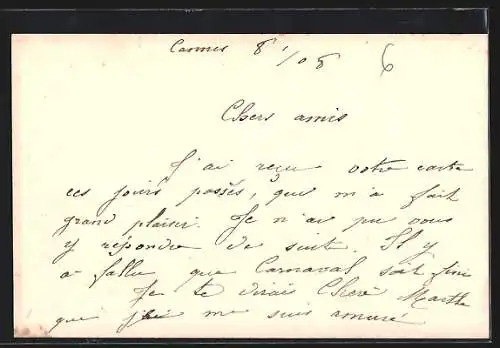 Cannes 8 1/08 6
Chers amis
J'ai reçu votre carte
ces jours passés, qui m'a fait
grand plaisir. Je n'ai pu vous
y répondre de suite. Il y
a fallu que Carnaval soit fini
Je te dirais Chère Marthe
que je me suis amusé